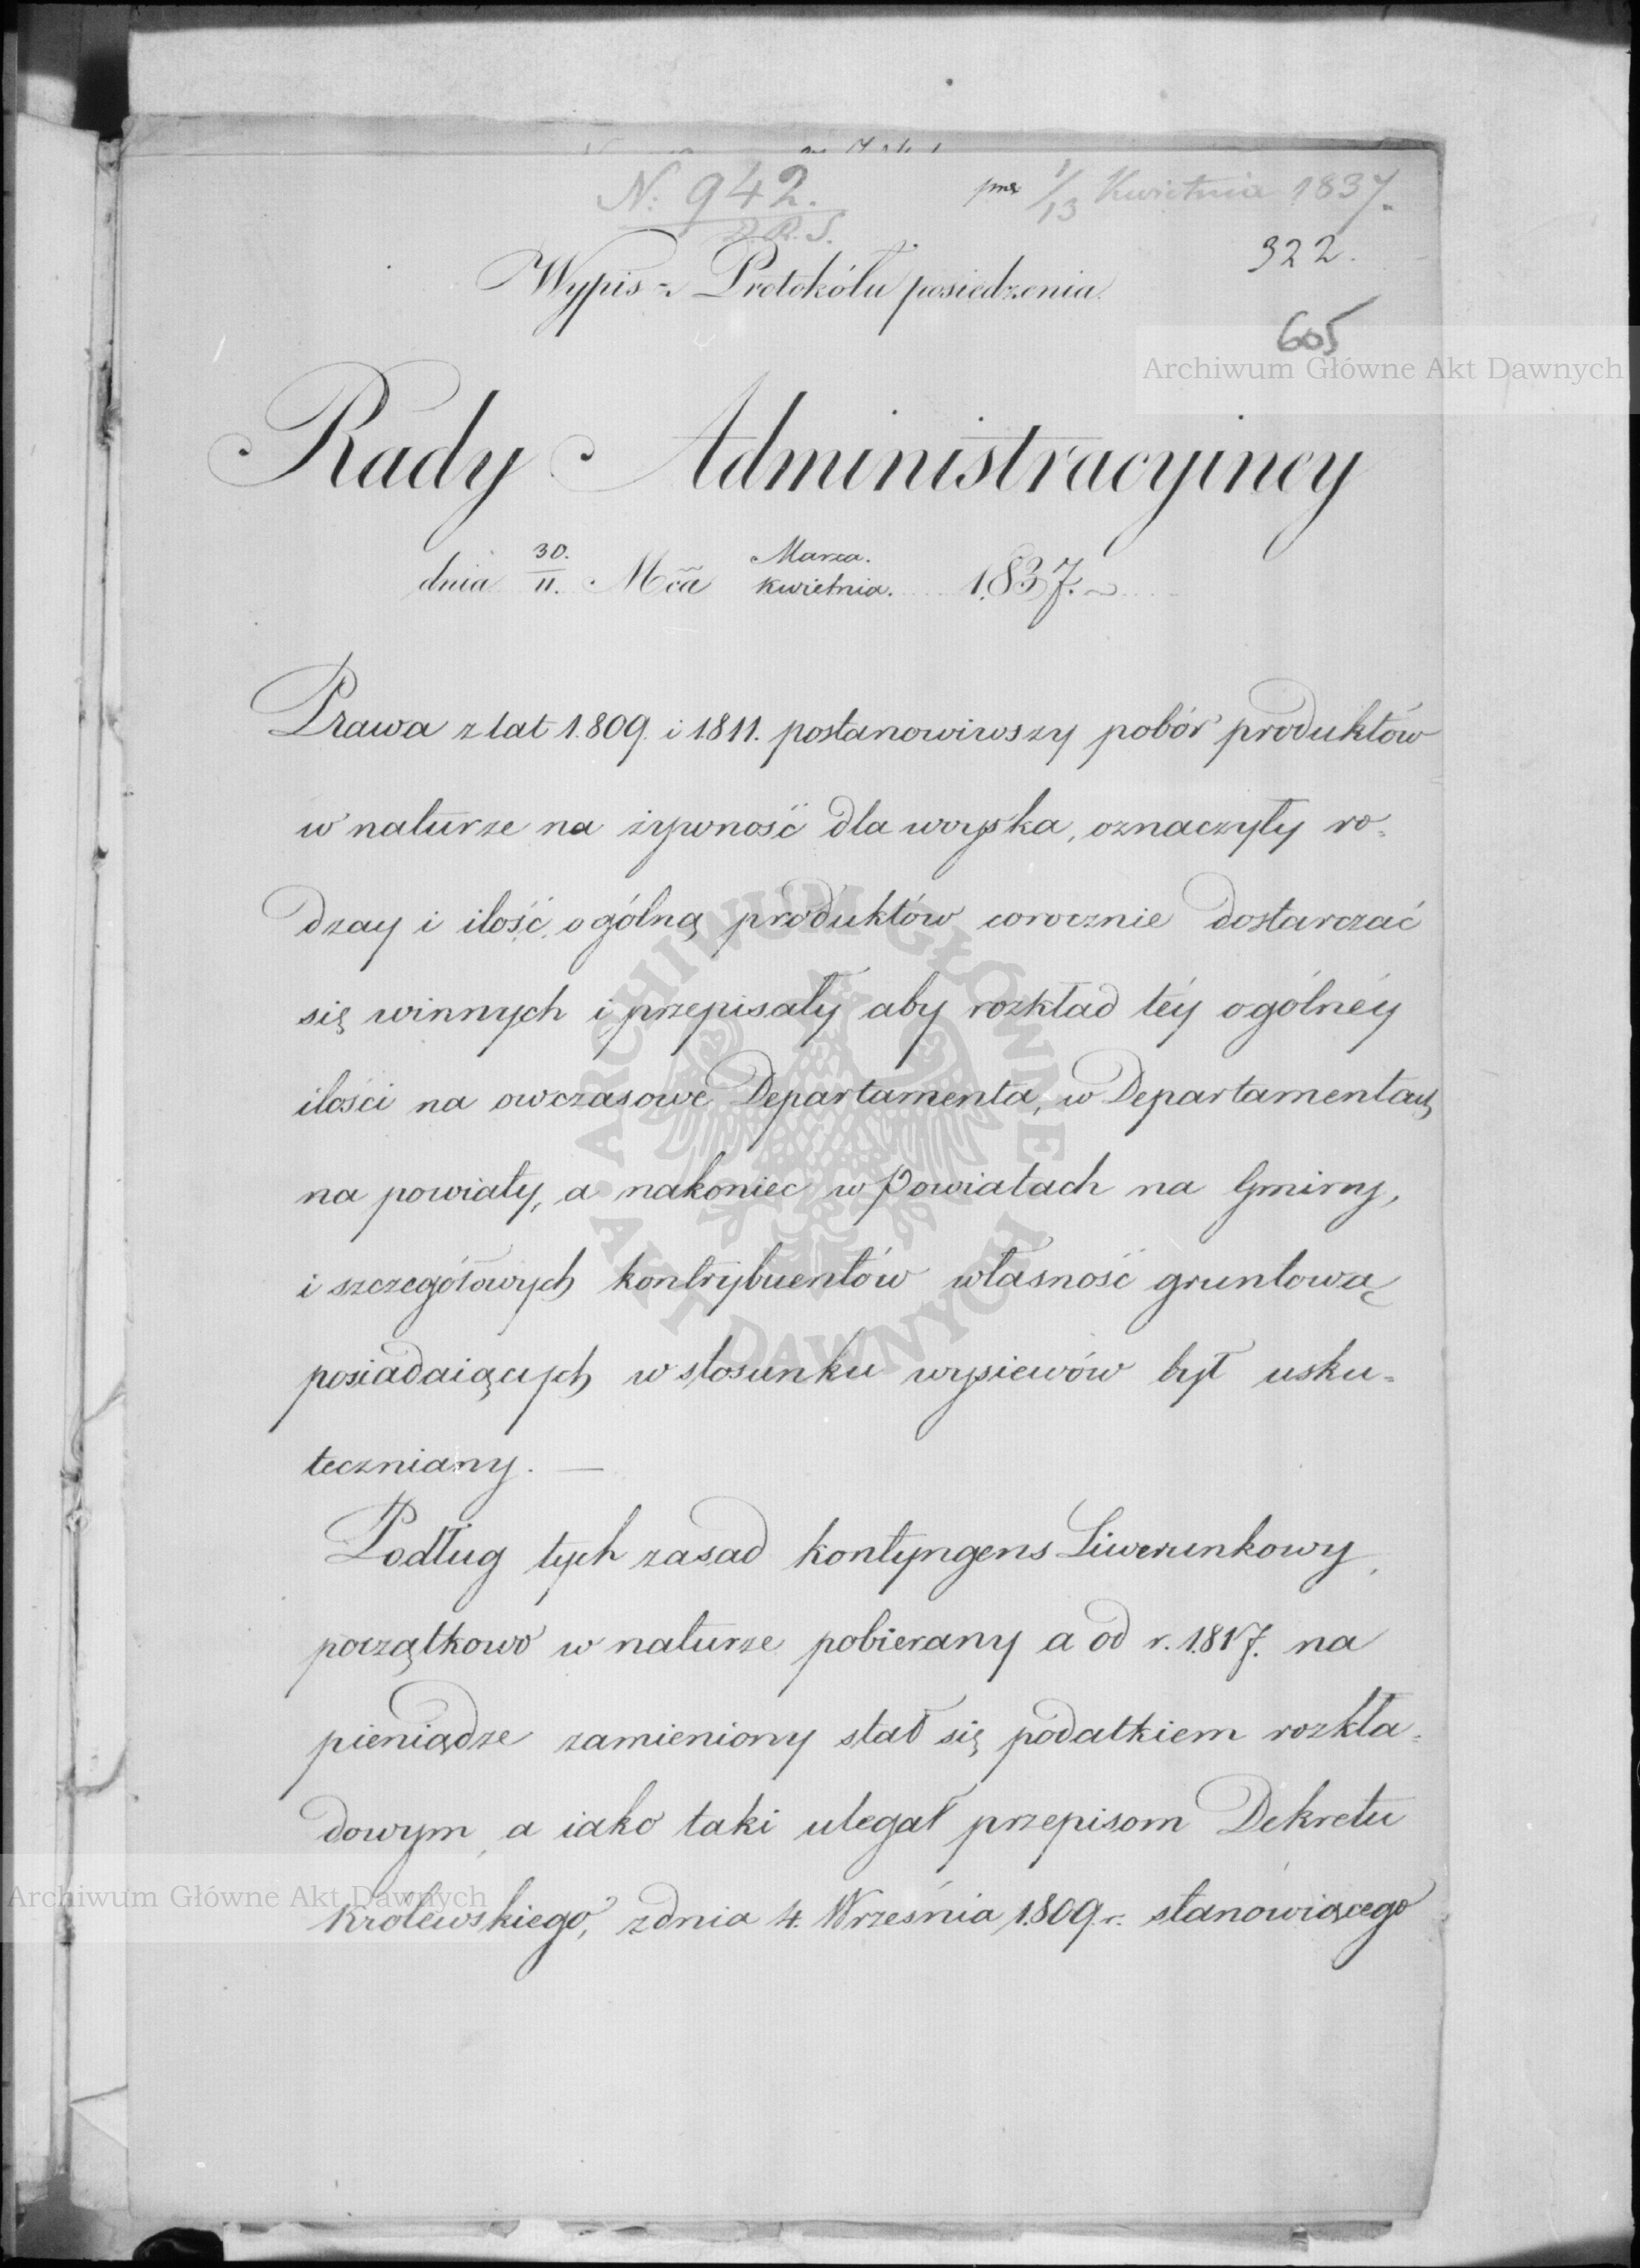 N: 942.
D.R.S.
prs 1/13 Kwietnia 1837.
322.
605
Archiwum Główne Akt Dawnych
Wypis z Protokółu posiedzenia
Rady Administracyiney
dnia 30./11. Mca Marca./Kwietnia. 1837.
Prawa z lat 1809. i 1811. postanowiwszy pobór produktów
w naturze na żywność dla woyska, oznaczyły ro=
dzay i ilość ogólną produktów corocznie dostarczać
się winnych i przepisały aby rozkład téy ogólnéy
ilości na owczasowe Departamenta, w Departamentach
na powiaty, a nakoniec w Powiatach na Gminy,
i szczegółowych kontrybuentów własność gruntową
posiadaiących w stosunku wysiewów był usku=
teczniany. —
Podług tych zasad kontyngens Liwerunkowy,
początkowo w naturze pobierany a od r. 1817. na
pieniądze zamieniony stał się podatkiem rozkła=
dowym, a iako taki ulegał przepisom Dekretu
Królewskiego, z dnia 4. Września 1809. r. stanowiącego
ARCHIWUM GŁÓWNE AKT DAWNYCH
Archiwum Główne Akt Dawnych